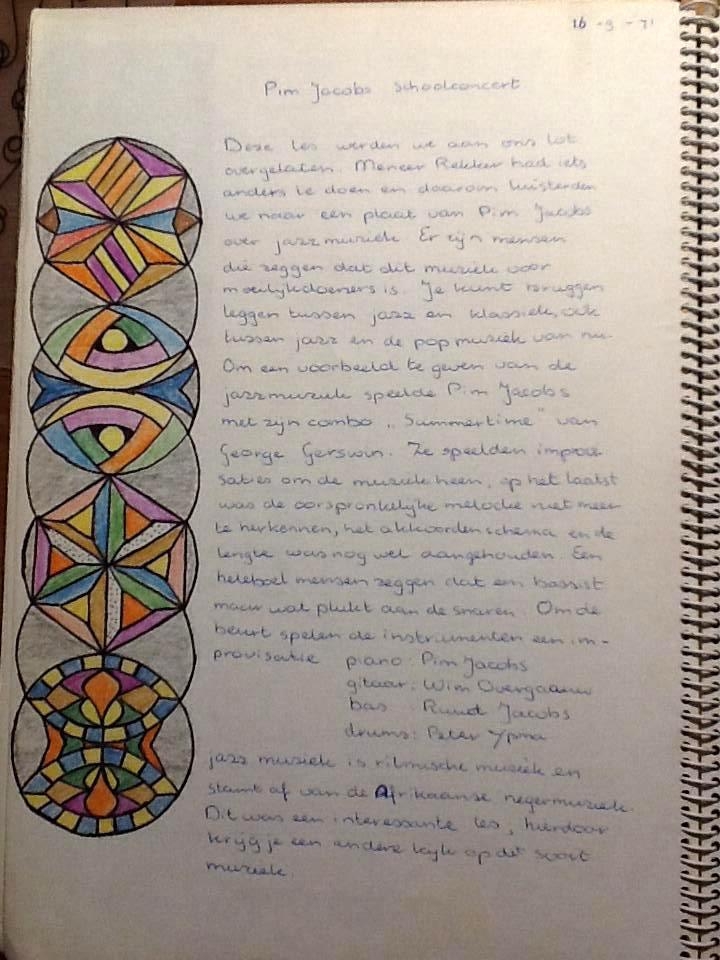 16 - 9 - 71
Pim Jacobs schoolconcert
Deze les werden we aan ons lot
overgelaten. Meneer Rekker had iets
anders te doen en daarom luisterden
we naar een plaat van Pim Jacobs
over jazzmuziek. Er zijn mensen
die zeggen dat dit muziek voor
moeilijkdoeners is. Je kunt bruggen
leggen tussen jazz en klassiek, ook
tussen jazz en de popmuziek van nu.
Om een voorbeeld te geven van de
jazzmuziek speelde Pim Jacobs
met zijn combo „Summertime" van
George Gerswin. Ze speelden improvi
saties om de muziek heen, op het laatst
was de oorspronkelijke melodie niet meer
te herkennen, het akkoordenschema en de
lengte was nog wel aangehouden. Een
heleboel mensen zeggen dat een bassist
maar wat plukt aan de snaren. Om de
beurt spelen de instrumenten een im-
provisatie piano: Pim Jacobs
gitaar: Wim Overgaauw
bas Ruud Jacobs
drums: Peter Ypma
jazz muziek is ritmische muziek en
stamt af van de Afrikaanse negermuziek.
Dit was een interessante les, hierdoor
krijg je een andere kijk op dit soort
muziek.